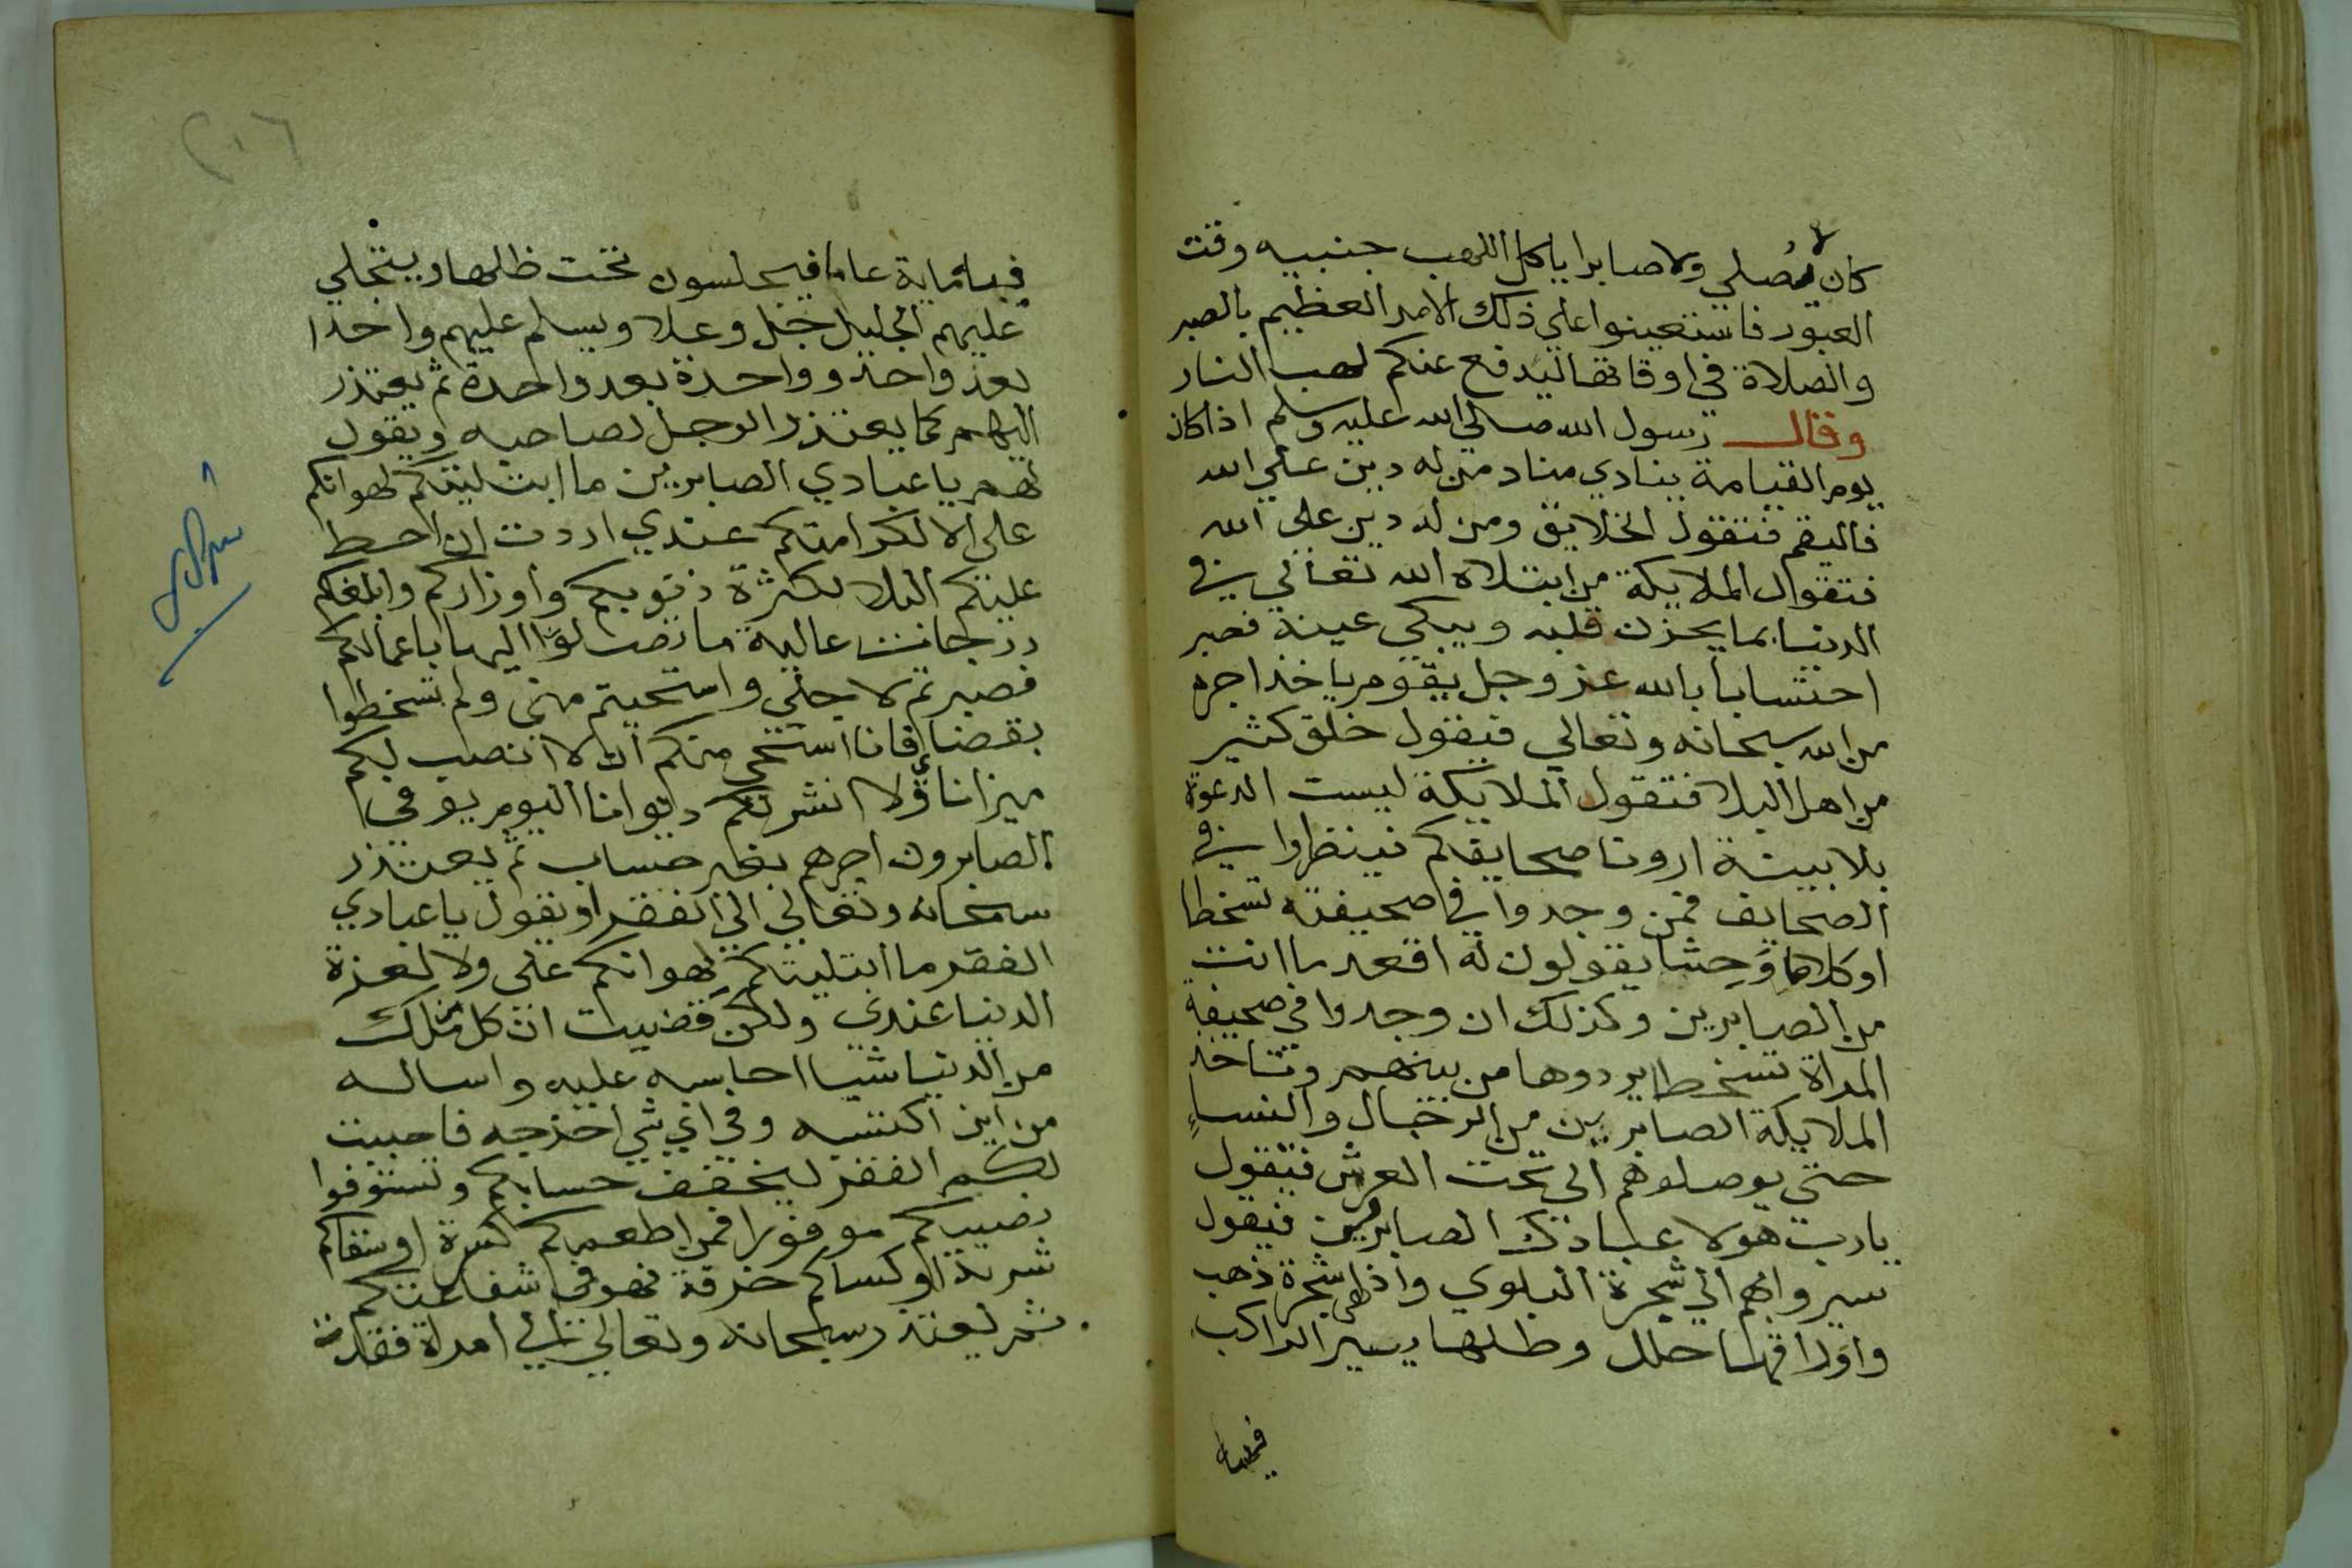 كان لا يصلي ولا صابرا ياكل اللهب جنبيه وقت
العبور فاستعينوا علي ذلك الامر العظيم بالصبر
والصلاة في اوقاتها ليدفع عنكم لهب النار
وقال رسول الله صلي الله عليه وسلم اذا كان
يوم القيامة ينادي مناد من له دين علي الله
فاليقم فتقول الخلايق ومن له دين علي الله
فتقول الملايكة من ابتلاه الله تعالي في
الدنيا بما يحزن قلبه ويبكي عينه فصبر
احتسابا بالله عز وجل يقوم ياخذ اجره
من الله سبحانه وتعالي فيقول خلق كثير
من اهل البلا فتقول الملايكة ليست الدعوة
بلا بينة ارونا صحايفكم فينظروا في
الصحايف فمن وجدوا في صحيفته تسخطا
او كلاما وحشا يقولون له اقعد ما انت
من الصابرين وكذلك ان وجدوا في صحيفة
المراة تسخطا يردوها من بينهم وتاخذ
الملايكة الصابرين من الرجال والنساء
حتي يوصلوهم الي تحت العرش فيقول
يارب هولا عبادك الصابرين فيقول
سيروا بهم الي شجرة البلوي واذا هي شجرة ذهب
واوراقها حلل وظلها يسير الراكب
فيها
٢٠٦
فيها ماية عام فيجلسون تحت ظلها ويتجلي
عليهم الجليل جل وعلا ويسلم عليهم واحدا
بعد واحد وواحدة بعد واحدة ثم يعتذر
اليهم كما يعتذر الرجل لصاحبه ويقول
لهم يا عبادي الصابرين ما ابتليتكم لهوانكم
علي الا لكرامتكم عندي اردت ان احط
عليكم البلا لكثرة ذنوبكم واوزاركم وابلغكم
درجات عالية ما تصلوا اليها باعمالكم
فصبرتم لاجلي واستحيتم مني ولم تسخطوا
بقضاي فانا استحي منكم ان لا انصب لكم
ميزانا ولا انشر لكم ديوانا اليوم يوفي
الصابرون اجرهم بغير حساب ثم يعتذر
سبحانه وتعالي الي الفقرا ويقول يا عبادي
الفقر ما ابتليتكم لهوانكم علي ولا لعزة
الدنيا عندي ولكن قضيت ان كل من ملك
من الدنيا شيا احاسبه عليه واساله
من اين اكتسبه وفي اي شي اخرجه فاحببت
لكم الفقر ليخفف حسابكم وتستوفوا
نصيبكم موفورا فمن اطعمكم كسرة او سقاكم
شربة او كساكم خرقة فهو في شفاعتكم
ثم يعتذر سبحانه وتعالي الي امراة فقدت